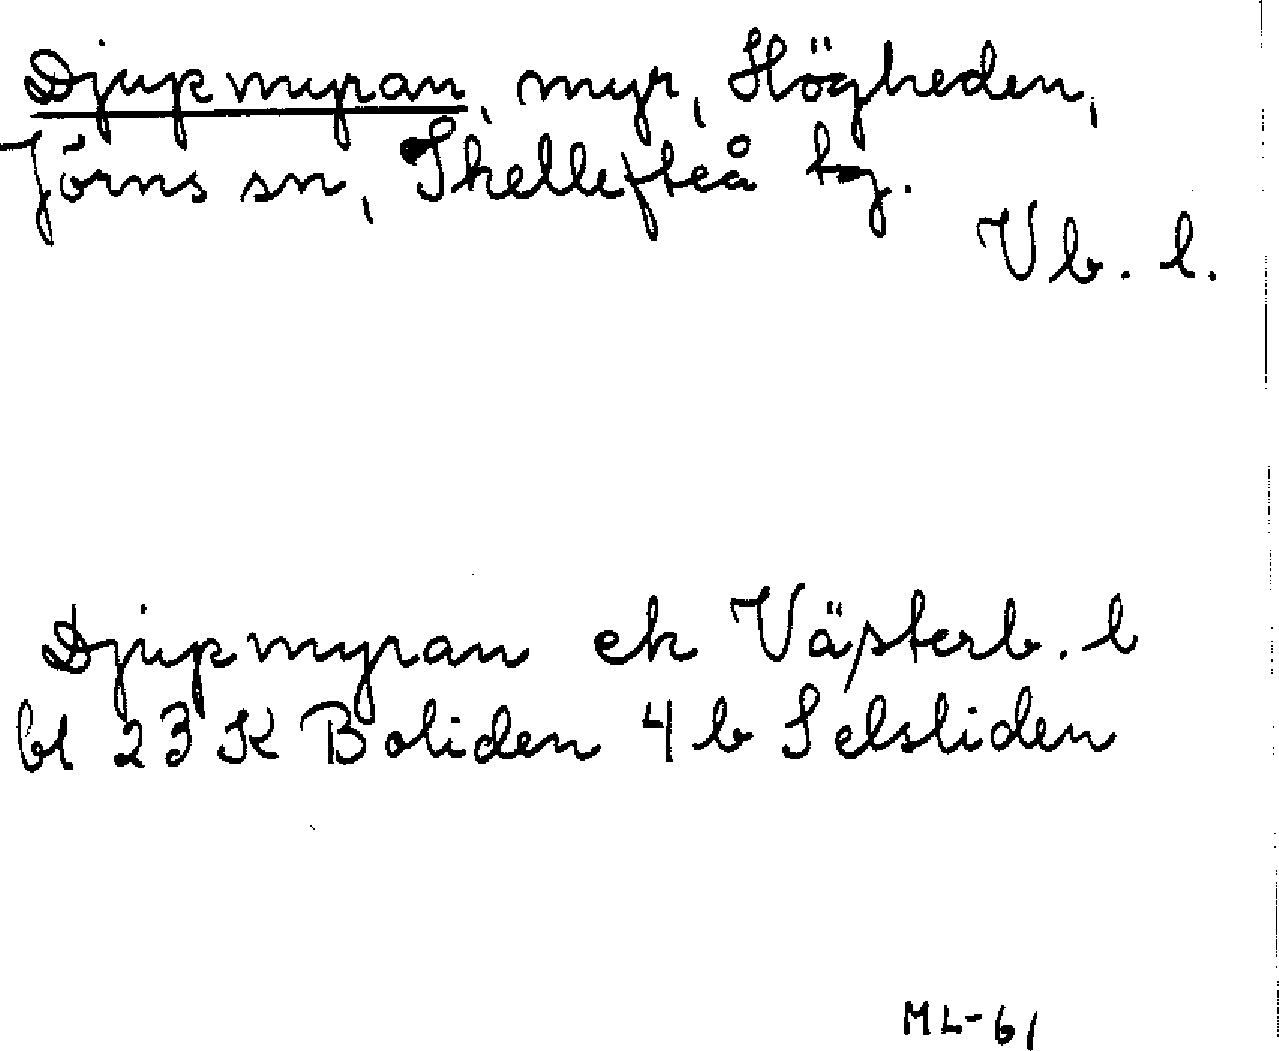 Djupmyran, myr, Högheden,
Jörns sn, Skellefteå tg.
Vb. l.
Djupmyran ek Västerb. l
bl 23 K Boliden 4 b Selsliden
ML-61